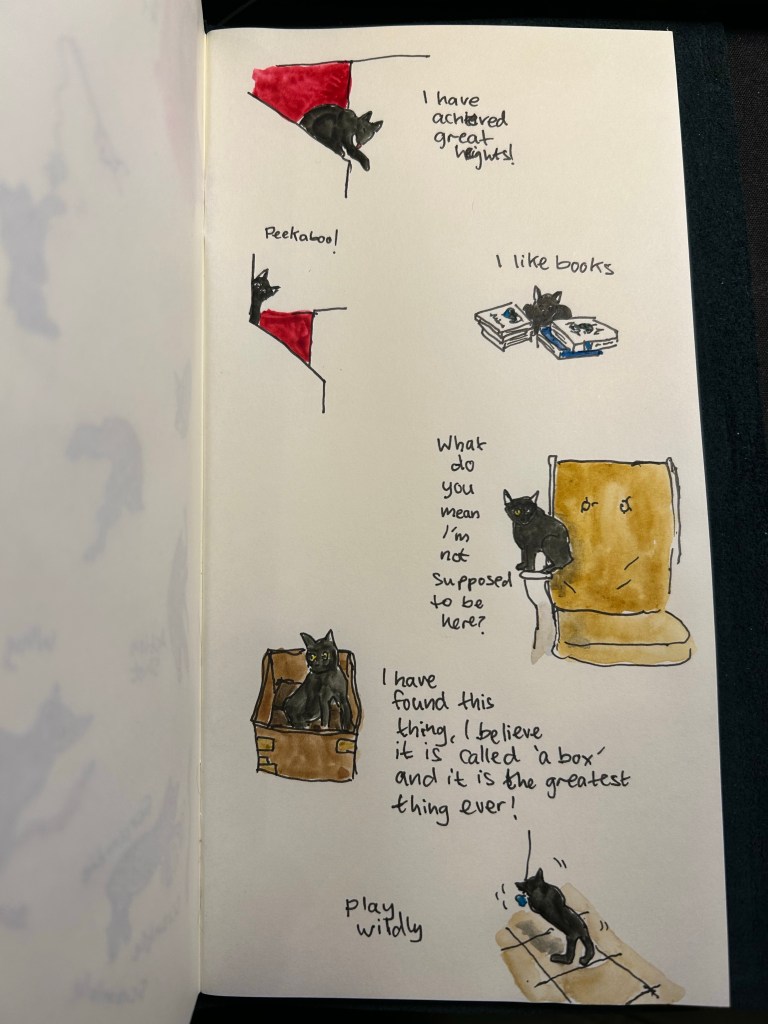 I have
achieved
great
heights!
Peekaboo!
I like books
What
do
you
mean
I'm
not
supposed
to be
here?
I have
found this
thing, I believe
it is called 'a box'
and it is the greatest
thing ever!
play
wildly